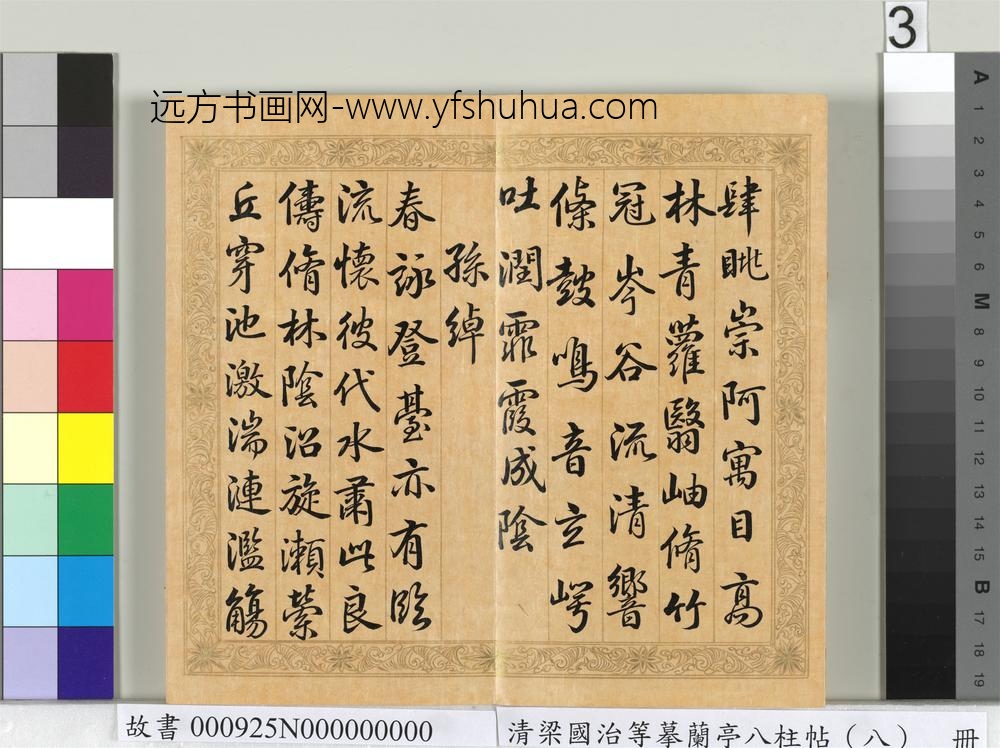 3
远方书画网-www.yfshuhua.com
肆眺崇阿寓目高
林青蘿翳岫脩竹
冠岑谷流清響
條鼓鳴音立崿
吐潤霏霞成陰
孫綽
春詠登臺亦有臨
流懷彼代水肅此良
儔脩林陰沼旋瀨縈
丘穿池激湍連濫觴
A 1 2 3 4 5 6 M 8 9 10 11 12 13 14 15 B 17 18 19
故書 000925N000000000
清梁國治等摹蘭亭八柱帖（八） 冊